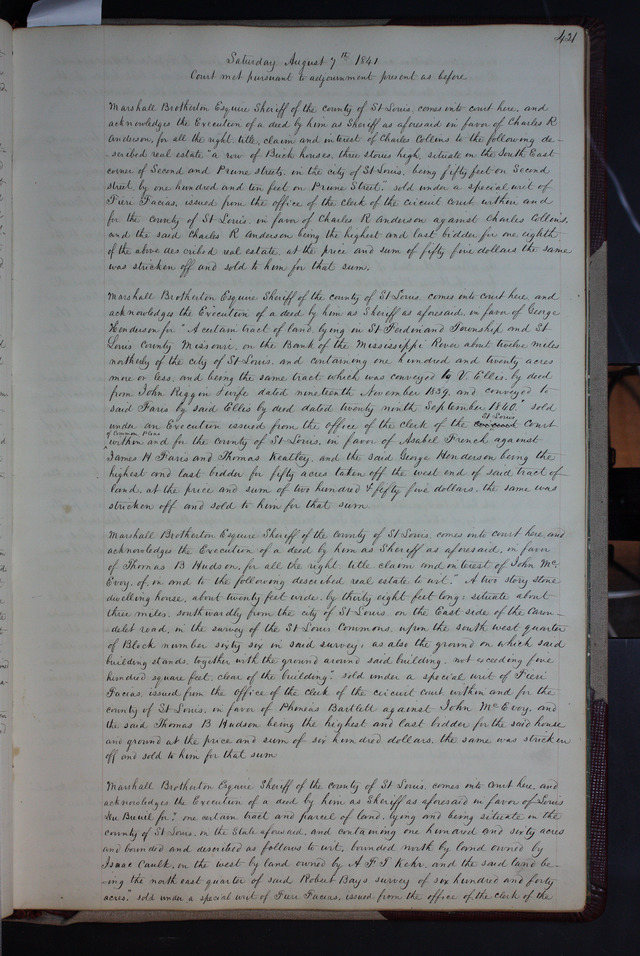 421
Saturday August 7th 1841
Court met pursuant to adjournment present as before
Marshall Brotherton Esquire Sheriff of the county of St Louis, comes into court here, and
acknowledges the Execution of a deed by him as Sheriff as aforesaid in favor of Charles R
Anderson, for all the right, title, claim and interest of Charles Collins to the following de-
scribed real estate "a row of Brick houses, three stories high, situate on the South East
corner of Second and Prune streets, in the city of St Louis, being fifty feet on Second
street, by one hundred and ten feet on Prune Street," sold under a special writ of
Fieri Facias, issued from the office of the clerk of the Circuit Court within and
for the county of St Louis, in favor of Charles R Anderson against Charles Collins,
and the said Charles R Anderson being the highest and last bidder for one eighth
of the above described real estate, at the price and sum of fifty five dollars the same
was stricken off and sold to him for that sum.
Marshall Brotherton Esquire Sheriff of the county of St Louis, comes into court here, and
acknowledges the Execution of a deed by him as Sheriff as aforesaid, in favor of George
Henderson for "A certain tract of land, lying in St Ferdinand Township and St
Louis County Missouri, on the Bank of the Mississippi River about twelve miles
northerly of the city of St Louis, and containing one hundred and twenty acres
more or less, and being the same tract which was conveyed to V. Ellis, by deed
from John Riggin & wife dated nineteenth November 1839, and conveyed to
said Faris by said Ellis by deed dated twenty ninth September 1840," sold
under an Execution issued from the office of the clerk of the St Louis Court
of Common Pleas
within and for the county of St Louis, in favor of Asahel French against
James H Faris and Thomas Keatley, and the said George Henderson being the
highest and last bidder for fifty acres taken off the west end of said tract of
land, at the price and sum of two hundred & fifty five dollars, the same was
stricken off and sold to him for that sum
Marshall Brotherton Esquire Sheriff of the county of St Louis, comes into court here and
acknowledges the Execution of a deed by him as Sheriff as aforesaid, in favor
of Thomas B Hudson, for all the right, title, claim and interest of John Mc-
Evoy, of, in and to the following described real estate to wit, "A two story stone
dwelling house, about twenty feet wide, by thirty eight feet long, situate about
three miles, southwardly from the city of St Louis, on the East side of the Caron-
delet road, in the survey of the St Louis Commons, upon the south west quarter
of Block number sixty six in said survey, as also the ground on which said
building stands, together with the ground around said building, not exceeding five
hundred square feet, clear of the building", sold under a special writ of Fieri
Facias, issued from the office of the clerk of the circuit court within and for the
county of St Louis, in favor of Bartlett against John McEvoy, and
the said Thomas B Hudson being the highest and last bidder for the said house
and ground at the price and sum of six hundred dollars, the same was stricken
off and sold to him for that sum
Marshall Brotherton Esquire Sheriff of the county of St Louis, comes into Court here, and
acknowledges the Execution of a deed by him as Sheriff as aforesaid in favor of Louis
Du Breuil for "one certain tract and parcel of land, lying and being situate in the
county of St Louis, in the State aforesaid, and containing one hundred and sixty acres
and bounded and described as follows to wit, bounded north by land owned by
Isaac Caulk, on the west by land owned by A F J Kehr, and the said land be-
ing the north east quarter of said Robert Bays survey of six hundred and forty
acres," sold under a special writ of Fieri Facias, issued from the office of the clerk of the